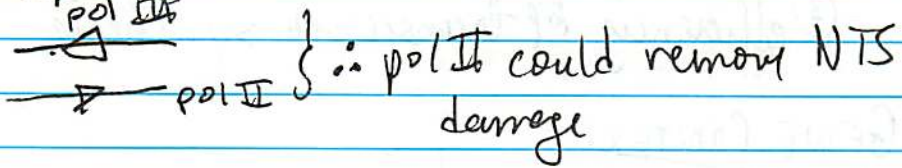 pol III
pol II } ∴ pol II could remove NTS
damage